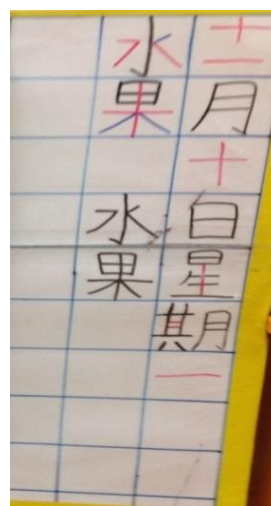 十一月十白星期一
水果 水果